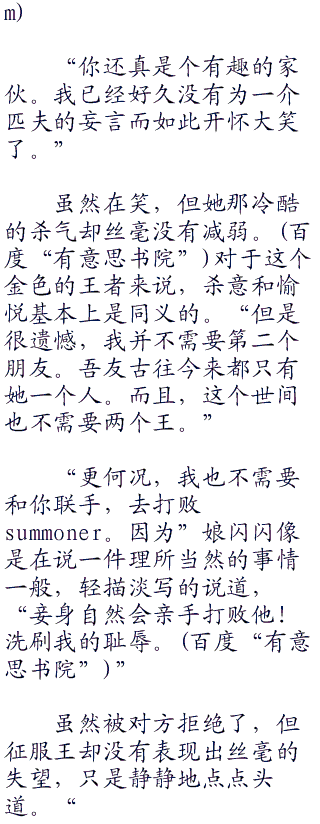 m）
“你还真是个有趣的家
伙。我已经好久没有为一介
匹夫的妄言而如此开怀大笑
了。”
虽然在笑，但她那冷酷
的杀气却丝毫没有减弱。（百
度“有意思书院”）对于这个
金色的王者来说，杀意和愉
悦基本上是同义的。“但是
很遗憾，我并不需要第二个
朋友。吾友古往今来都只有
她一个人。而且，这个世间
也不需要两个王。”
“更何况，我也不需要
和你联手，去打败
summoner。因为”娘闪闪像
是在说一件理所当然的事情
一般，轻描淡写的说道，
“妾身自然会亲手打败他！
洗刷我的耻辱。（百度“有意
思书院”）”
虽然被对方拒绝了，但
征服王却没有表现出丝毫的
失望，只是静静地点点头
道。“